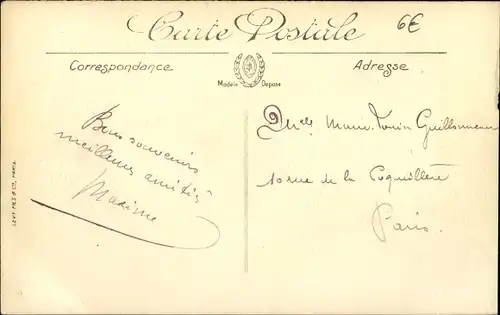 Carte Postale
6€
Correspondance
Adresse
Modèle Déposé
Bons souvenirs
meilleures amitiés
Maxime
Melle
10 rue de la Coquillère
Paris.
LEVY FILS & Cie, PARIS.